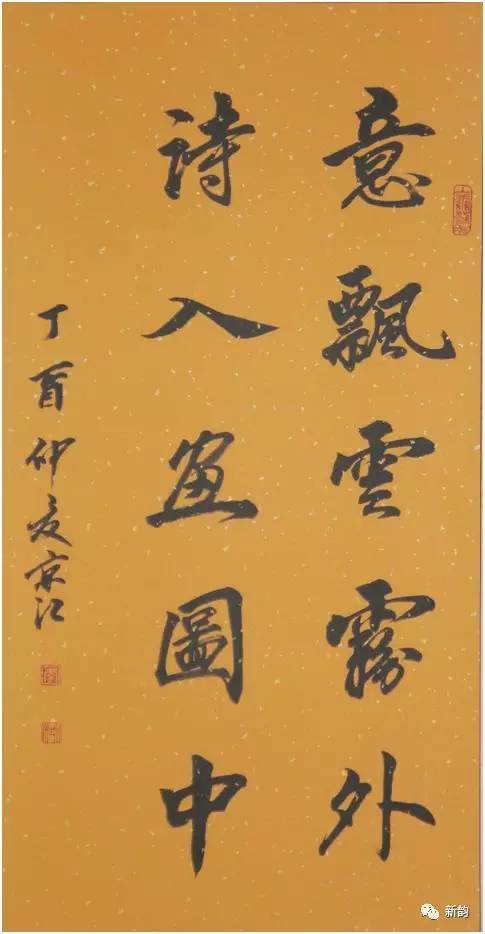 意飄雲霧外
詩入畫圖中
丁酉仲夏京江
新韵